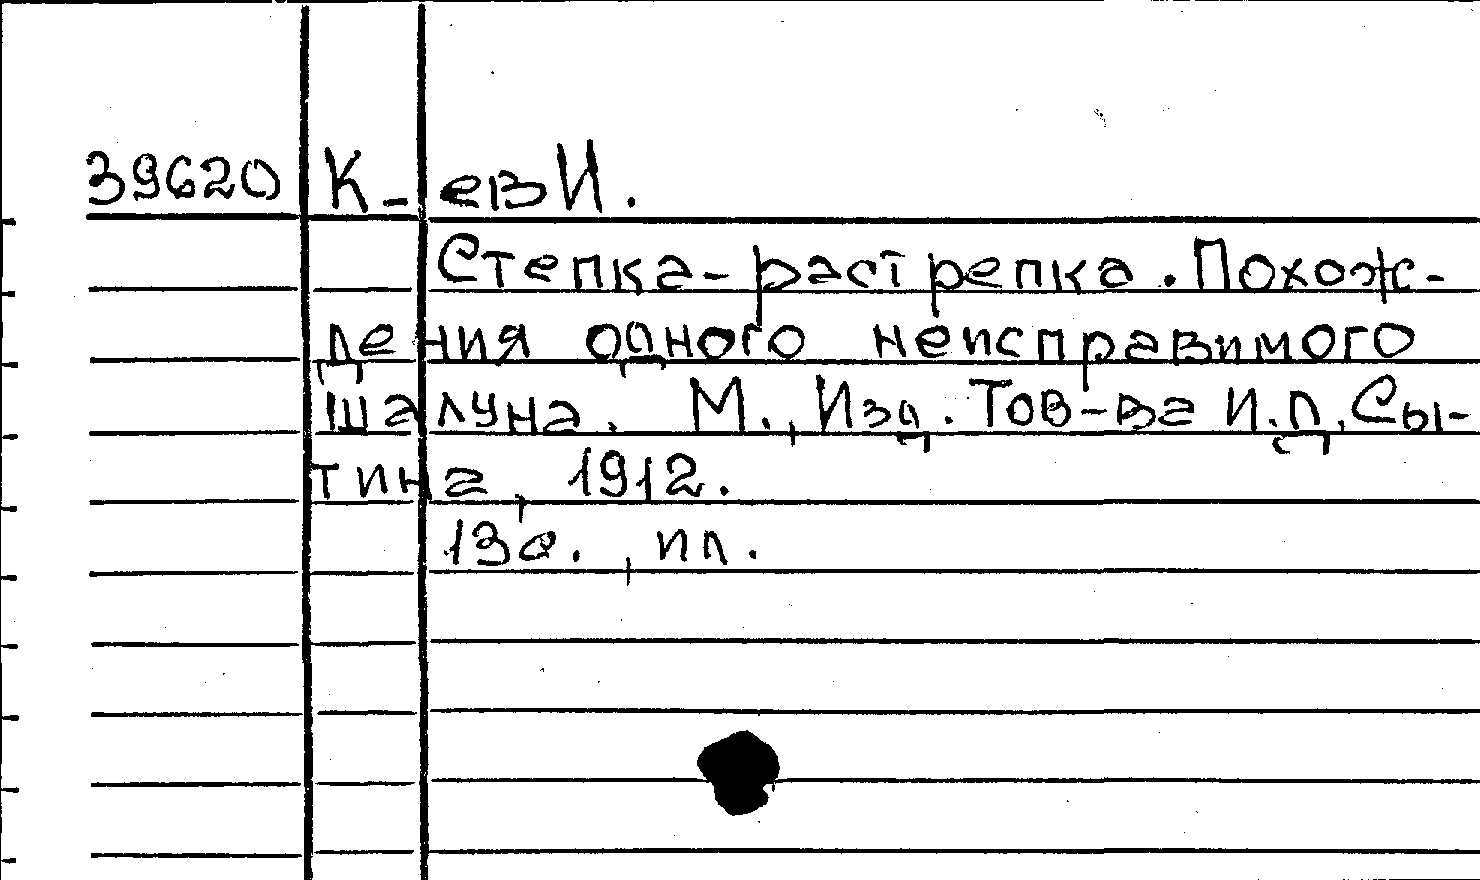 39620 К-ев И.
Степка-растрепка. Похож-
дения одного неисправимого
шалуна. М., Изд. Тов-ва И.Д. Сы-
тина, 1912.
13 с., ил.